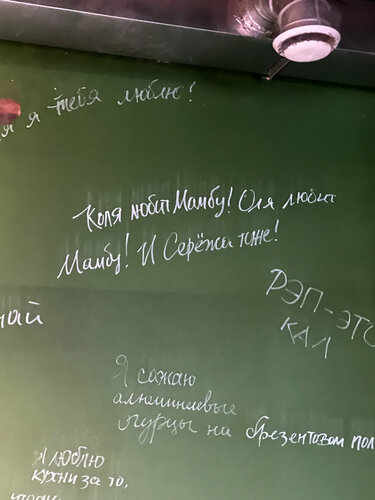 я я тебя люблю!
Коля любит Мамбу! Оля любит
Мамбу! И Серёжа тоже!
РЭП-ЭТО
КАЛ
чай
Я сажаю
алюминиевые
огурцы на брезентовом пол
Я люблю
кухни за то,